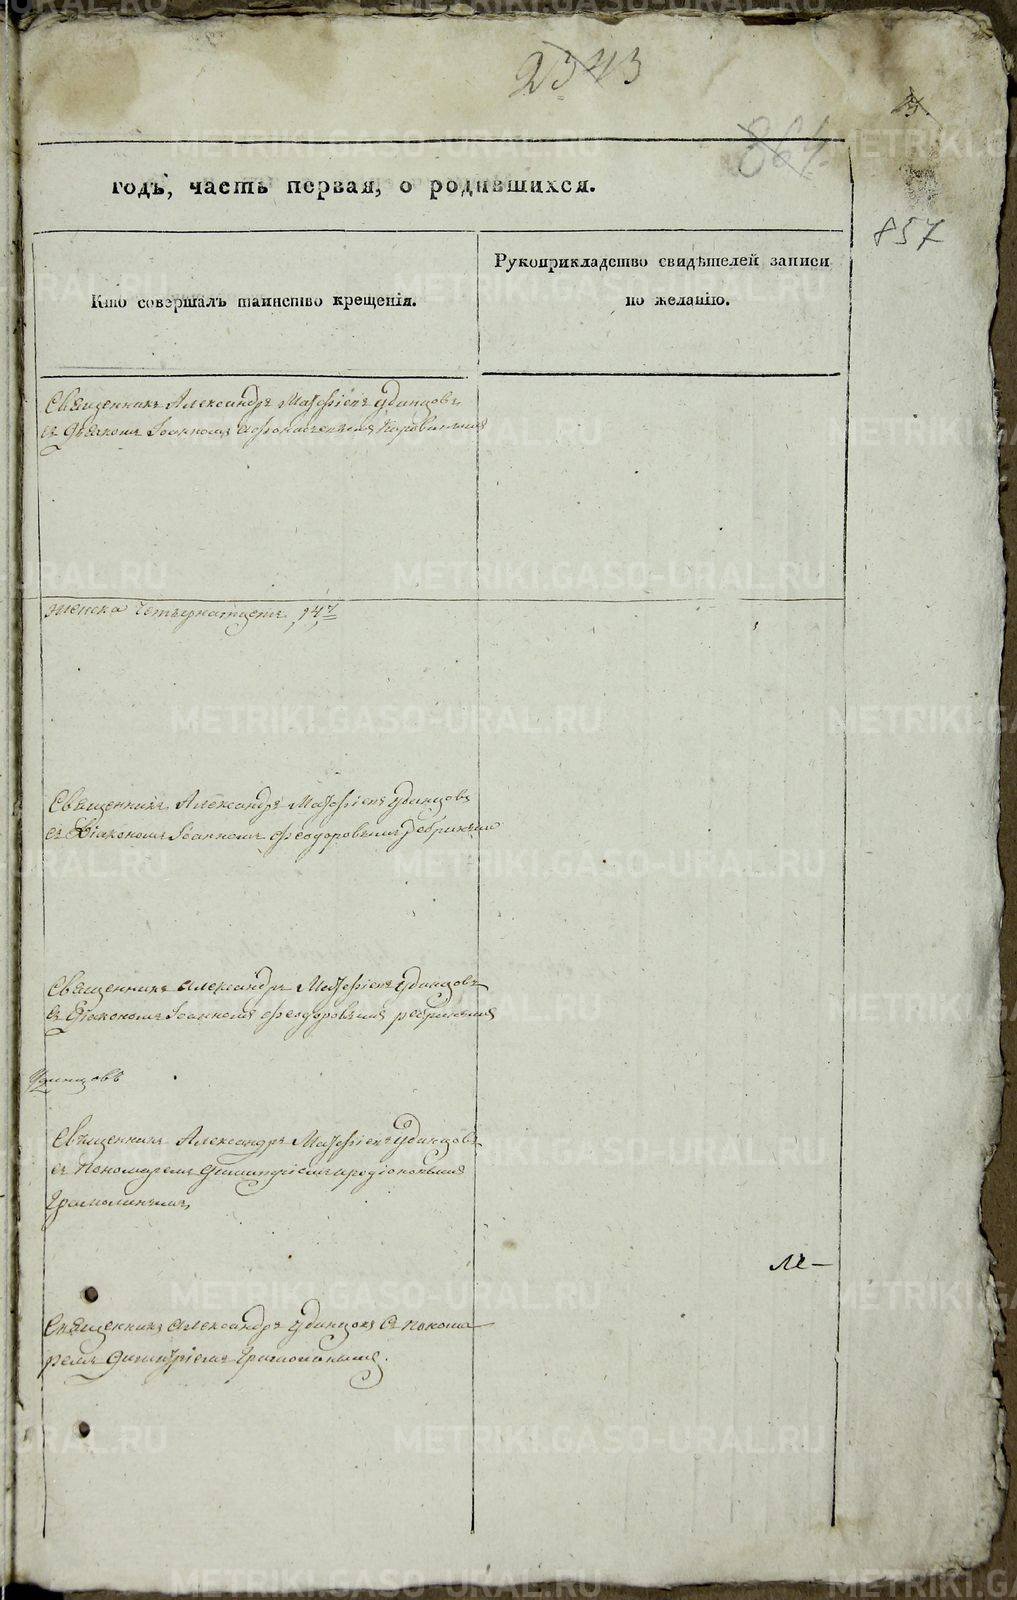 2343
864.
857
годъ, часть первая, о родившихся.
Кто совершалъ таинство крещенія.
Рукоприкладство свидѣтелей записи
по желанію.
Священникъ Александръ Матфіевъ Удинцовъ
съ Діакономъ Іоанномъ
женска Четырнатцеть 14
Священникъ Александръ Матфіевъ Удинцовъ
съ Діакономъ Іоанномъ Феодоровымъ
Священникъ Александръ Матфіевъ Удинцовъ
съ Діакономъ Іоанномъ Феодоровымъ
Удинцовъ
Священникъ Александръ Матфіевъ Удинцовъ
съ Пономаремъ Димитріемъ
Священникъ Александръ Удинцовъ съ Понома
ремъ Димитріемъ
METRIKI.GASO-URAL.RU